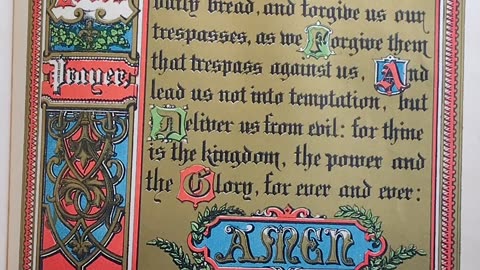 daily bread, and forgive us our
trespasses, as we Forgive them
that trespass against us, And
lead us not into temptation, but
Deliver us from evil: for thine
is the kingdom, the power and
the Glory, for ever and ever:
AMEN
Prayer